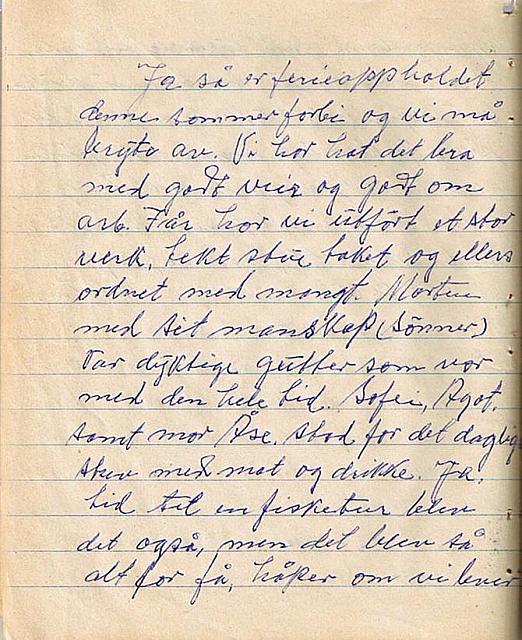 Ja så er ferieoppholdet
denne sommer forbi og vi må
bryte av. Vi har hat det bra
med godt veir og godt om
arb. I år har vi utført et stor
verk, tekt stue taket og ellers
ordnet med mangt. Morten
med sit manskap (sønner)
var dyktige gutter som var
med den hele tid. Sofie, Agot,
samt mor Åse. stod for det daglig
stev med mat og drikke. Ja,
tid til en fisketur blev
det også, men det blev så
alt for få, håper om vi lever